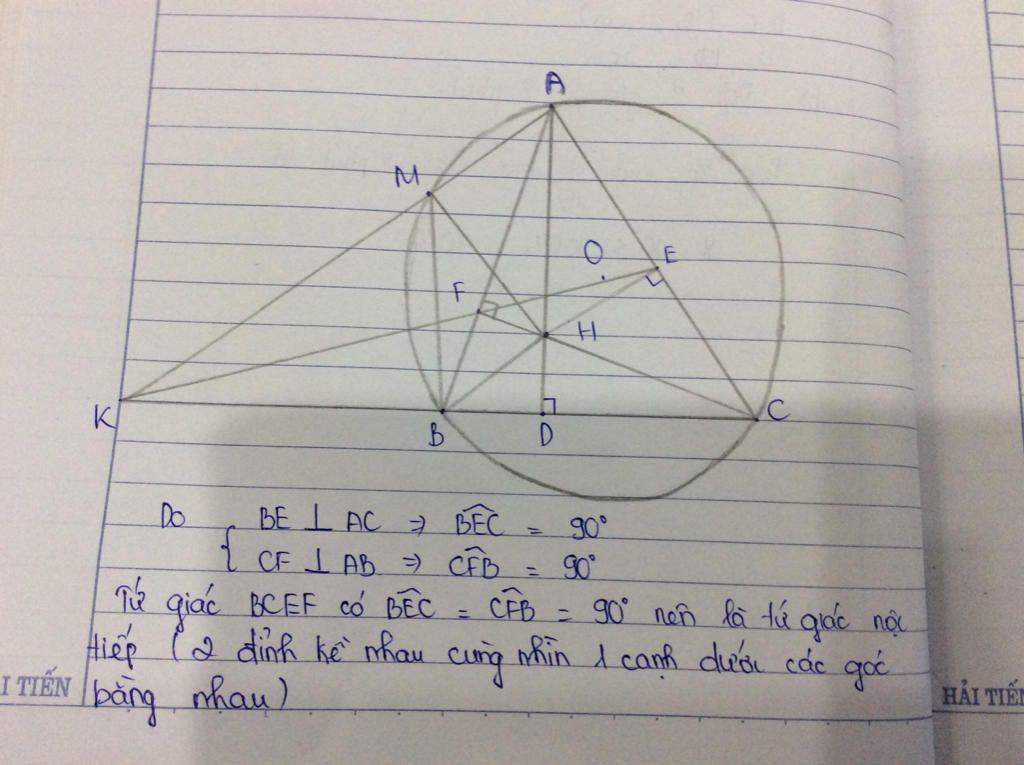 A
M
O
E
F
H
K
B
D
C
Do { BE ⊥ AC ⇒ \widehat{BEC} = 90°
CF ⊥ AB ⇒ \widehat{CFB} = 90°
Tứ giác BCEF có \widehat{BEC} = \widehat{CFB} = 90° nên là tứ giác nội
tiếp ( 2 đỉnh kề nhau cùng nhìn 1 cạnh dưới các góc
bằng nhau)
I TIẾN
HẢI TIẾN